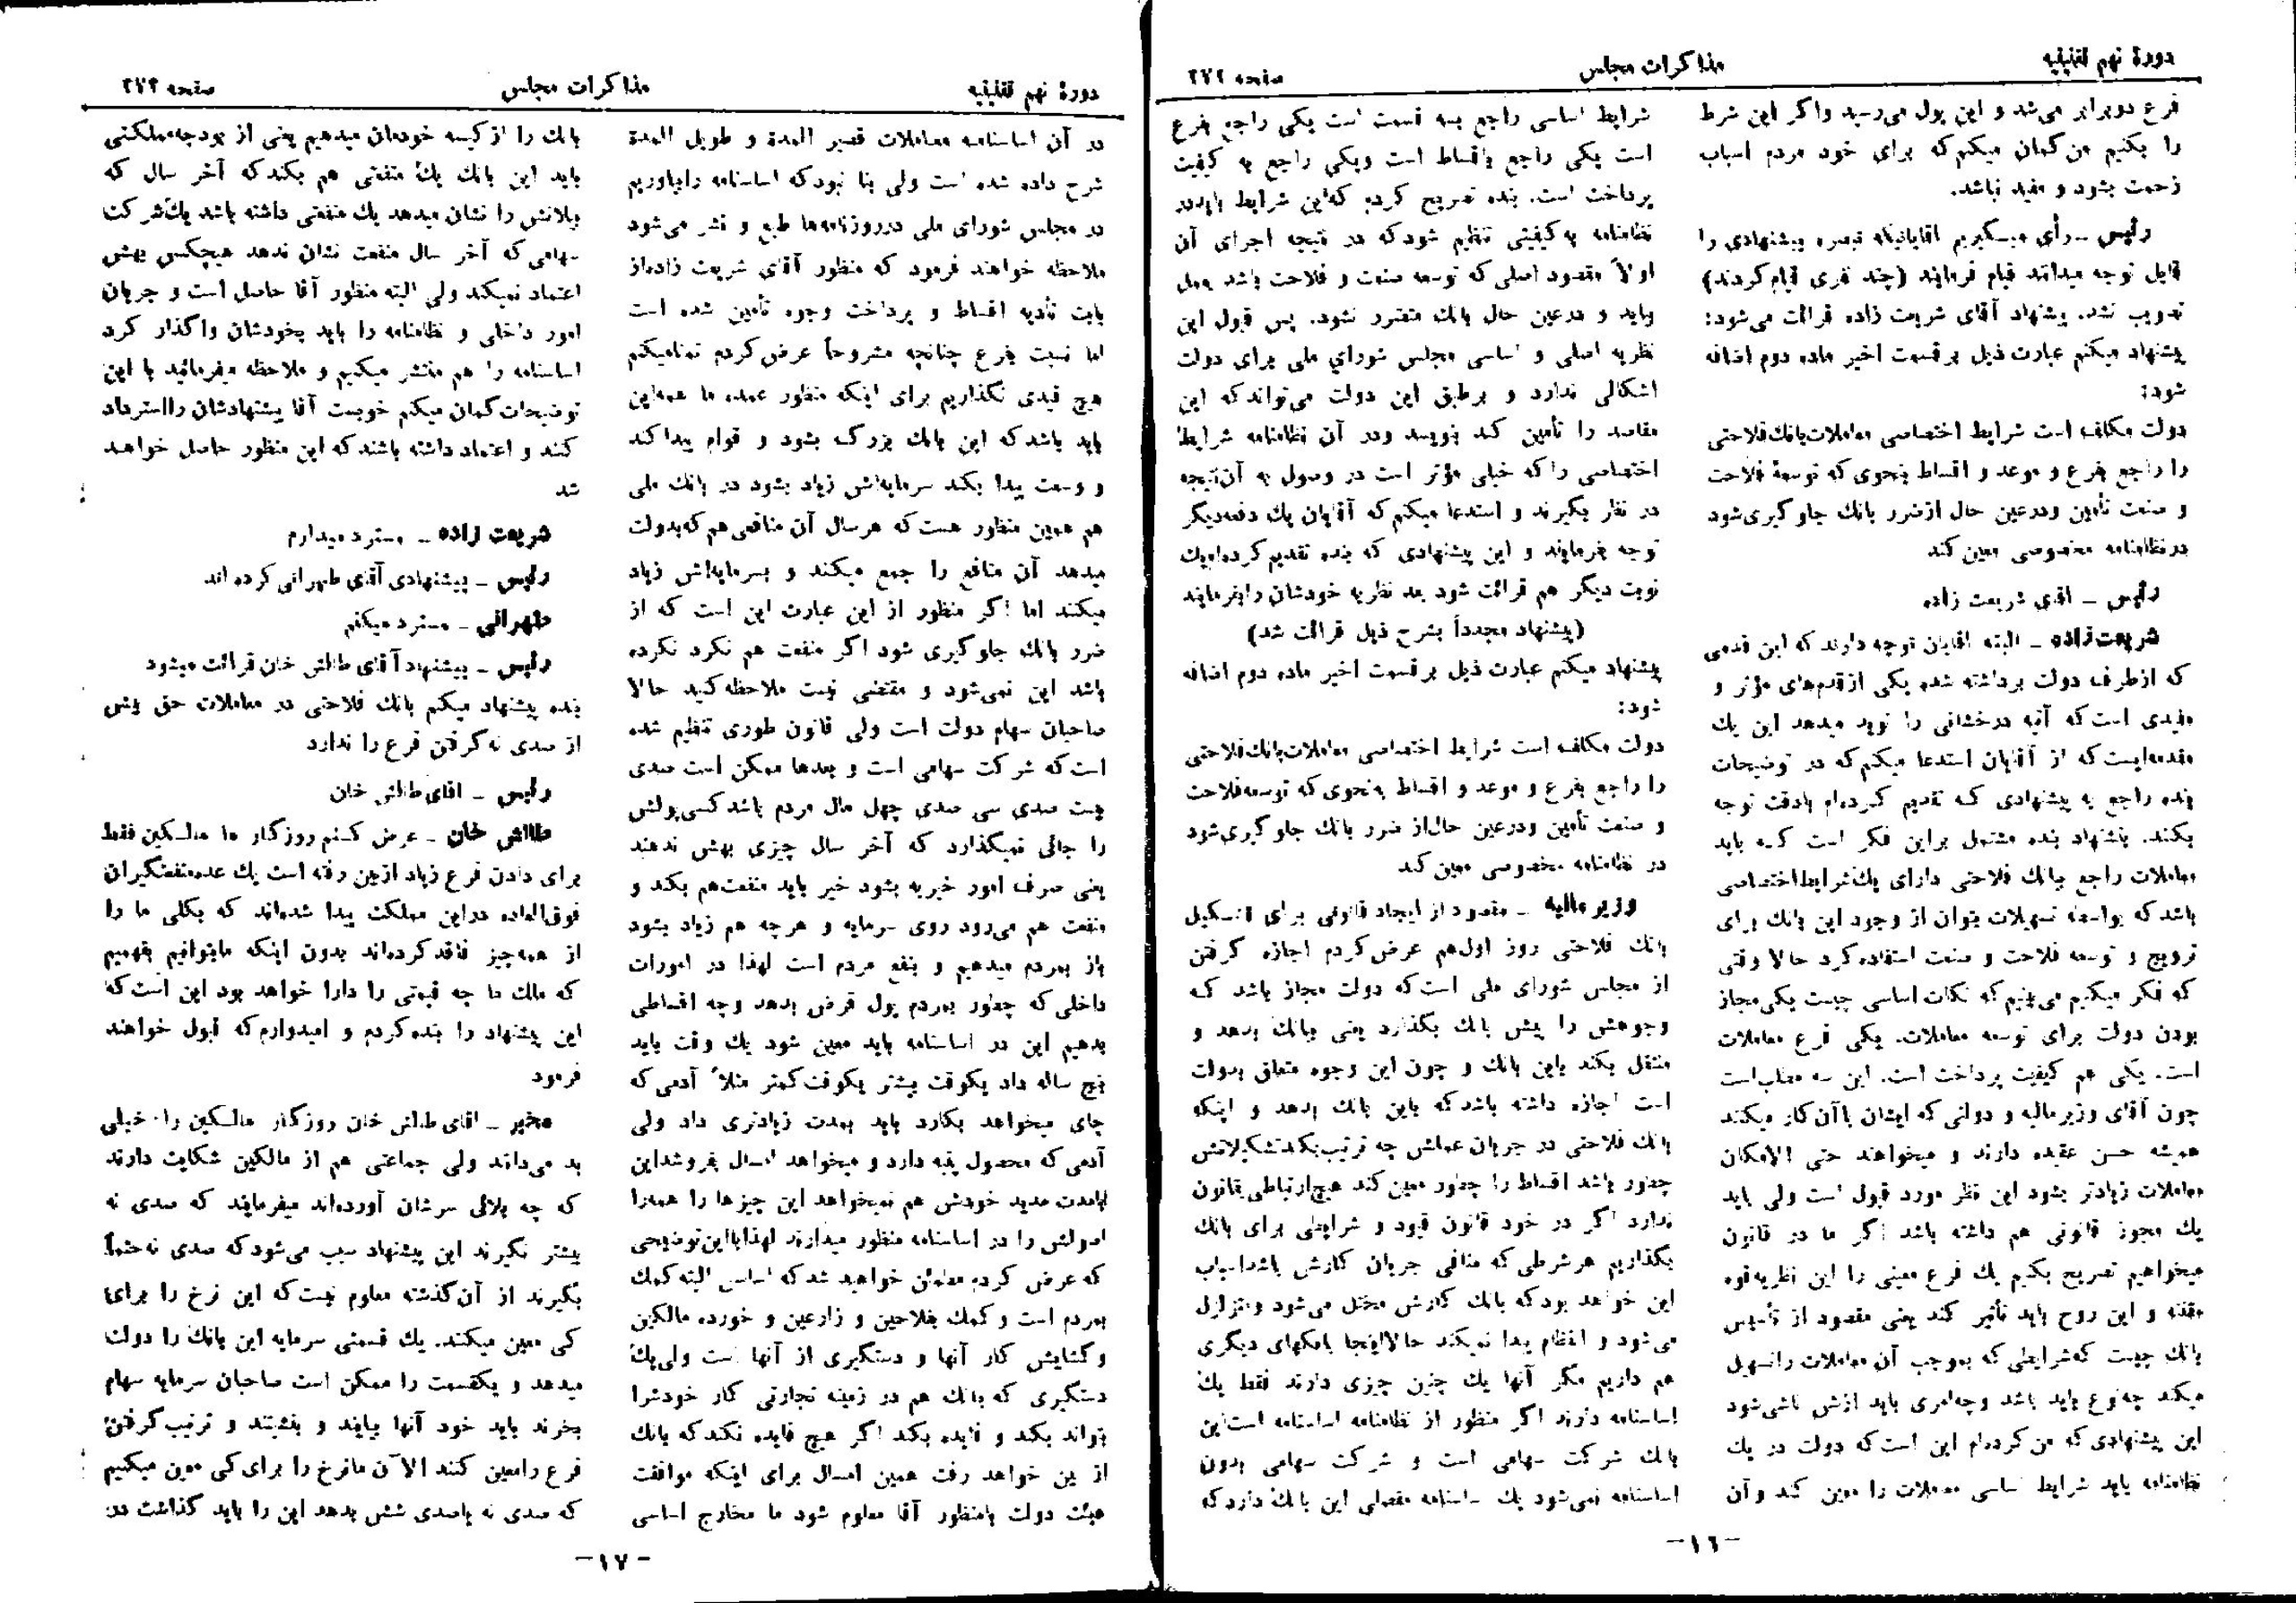 دورهٔ نهم تقنینیه
مذاکرات مجلس
صفحه ۲۷۲
فرع دوبرابر می‌شد و این پول می‌رسید واگر این شرط
را بکنیم من گمان میکنم که برای خود مردم اسباب
زحمت بشود و مفید نباشد.
رئیس ــ رأی میگیریم آقایانیکه تبصره پیشنهادی را
قابل توجه میدانند قیام فرمایند (چند نفری قیام کردند)
تصویب نشد. پیشنهاد آقای شریعت زاده قرائت می‌شود:
پیشنهاد میکنم عبارت ذیل بر قسمت اخیر ماده دوم اضافه
شود:
دولت مکلف است شرایط اختصاصی معاملات بانک فلاحتی
را راجع بفرع و موعد و اقساط بنحوی که توسعهٔ فلاحت
و صنعت تأمین ودرعین حال از ضرر بانک جلوگیری شود
در نظامنامه مخصوصی معین کند
رئیس ــ آقای شریعت زاده
شریعت‌زاده ــ البته آقایان توجه دارند که این قدمی
که از طرف دولت برداشته شده یکی از قدمهای مؤثر و
مفیدی است که آتیه درخشانی را نوید میدهد این یک
مقدمه‌ایست که از آقایان استدعا میکنم که در توضیحات
بنده راجع به پیشنهادی که تقدیم کرده‌ام بادقت توجه
بکنند. پیشنهاد بنده مشتمل براین فکر است که باید
معاملات راجع ببانک فلاحتی دارای یک شرایط اختصاصی
باشد که بواسطه تسهیلات بتوان از وجود این بانک برای
ترویج و توسعه فلاحت و صنعت استفاده کرد حالا وقتی
که فکر میکنیم می‌بینیم که نکات اساسی چیست یکی مجاز
بودن دولت برای توسعه معاملات. یکی فرع معاملات
است. یکی هم کیفیت پرداخت است. این سه مطلب است
چون آقای وزیر مالیه و دولتی که ایشان با آن کار میکنند
همیشه حسن عقیده دارند و میخواهند حتی الامکان
معاملات زیادتر بشود این نظر مورد قبول است ولی باید
یک مجوز قانونی هم داشته باشد اگر ما در قانون
میخواهیم تصریح بکنیم یک فرع معینی را این نظریه قوه
مقننه و این روح باید تأثیر کند یعنی مقصود از تأسیس
بانک چیست که شرایطی که بموجب آن معاملات را تسهیل
میکند چه نوع باید باشد وچه امری باید ازش ناشی شود
این پیشنهادی که من کرده‌ام این است که دولت در یک
نظامنامه باید شرایط اساسی معاملات را معین کند و آن
شرایط اساسی راجع بسه قسمت است یکی راجع بفرع
است یکی راجع باقساط است ویکی راجع به کیفیت
پرداخت است. بنده تصریح کردم که این شرایط باید در
نظامنامه به کیفیتی تنظیم شود که در نتیجه اجرای آن
اولاً مقصود اصلی که توسعه صنعت و فلاحت باشد بعمل
بیاید و درعین حال بانک متضرر نشود. پس قبول این
نظریه اصلی و اساسی مجلس شورای ملی برای دولت
اشکالی ندارد و برطبق این دولت می‌تواند که این
مقاصد را تأمین کند بنویسد ودر آن نظامنامه شرایط
اختصاصی را که خیلی مؤثر است در وصول به آن نتیجه
در نظر بگیرند و استدعا میکنم که آقایان یک دفعه دیگر
توجه بفرمایند و این پیشنهادی که بنده تقدیم کرده‌ام یک
نوبت دیگر هم قرائت شود بعد نظریه خودشان را بفرمایند
(پیشنهاد مجدداً بشرح ذیل قرائت شد)
پیشنهاد میکنم عبارت ذیل بر قسمت اخیر ماده دوم اضافه
شود:
دولت مکلف است شرایط اختصاصی معاملات بانک فلاحتی
را راجع بفرع و موعد و اقساط به‌نحوی که توسعه فلاحت
و صنعت تأمین ودرعین حال از ضرر بانک جلوگیری شود
در نظامنامه مخصوصی معین کند
وزیر مالیه ــ مقصود از ایجاد قانونی برای تشکیل
بانک فلاحتی روز اول هم عرض کردم اجازه گرفتن
از مجلس شورای ملی است که دولت مجاز باشد که
وجوهش را پیش بانک بگذارد یعنی ببانک بدهد و
منتقل بکند باین بانک و چون این وجوه متعلق بدولت
است اجازه داشته باشد که باین بانک بدهد و اینکه
بانک فلاحتی در جریان عملش چه ترتیب بکند تشکیلاتش
چطور باشد اقساط را چطور معین کند هیچ ارتباطی بقانون
ندارد اگر در خود قانون قیود و شرایطی برای بانک
بگذاریم هر شرطی که منافی جریان کارش باشد اسباب
این خواهد بود که بانک کارش مختل می‌شود و متزلزل
می‌شود و انتظام پیدا نمیکند حالا اینجا بانکهای دیگری
هم داریم مگر آنها یک چنین چیزی دارند فقط یک
اساسنامه دارند اگر منظور از نظامنامه اساسنامه است این
بانک شرکت سهامی است و شرکت سهامی بدون
اساسنامه نمی‌شود یک اساسنامه مفصلی این بانک دارد که
ــ۱۶ــ
دورهٔ نهم تقنینیه
مذاکرات مجلس
صفحه ۲۷۳
در آن اساسنامه معاملات قصیر المدة و طویل المدة
شرح داده شده است ولی بنا نبود که اساسنامه را بیاوریم
در مجلس شورای ملی در روزنامه‌ها طبع و نشر می‌شود
ملاحظه خواهند فرمود که منظور آقای شریعت زاده از
بابت تأدیه اقساط و پرداخت وجوه تأمین شده است
اما نسبت بفرع چنانچه مشروحاً عرض کردم تمنا میکنم
هیچ قیدی نگذاریم برای اینکه منظور عمده ما همه این
باید باشد که این بانک بزرگ بشود و قوام پیدا کند
و وسعت پیدا بکند سرمایه‌اش زیاد بشود در بانک ملی
هم همین منظور هست که هر سال آن منافعی هم که بدولت
میدهد آن منافع را جمع میکند و بسرمایه‌اش زیاد
میکند اما اگر منظور از این عبارت این است که از
ضرر بانک جلوگیری شود اگر منفعت هم نکرد نکرده
باشد این نمی‌شود و مقتضی نیست ملاحظه کنید حالا
صاحبان سهام دولت است ولی قانون طوری تنظیم شده
است که شرکت سهامی است و بعدها ممکن است صدی
بیست صدی سی صدی چهل مال مردم باشد کسی پولش
را جائی نمیگذارد که آخر سال چیزی بهش ندهند
یعنی صرف امور خیریه بشود خیر باید منفعت هم بکند و
منفعت هم می‌رود روی سرمایه و هرچه هم زیاد بشود
باز بمردم میدهیم و بنفع مردم است لهذا در امورات
داخلی که چطور بمردم پول قرض بدهد وچه اقساطی
بدهیم این در اساسنامه باید معین شود یک وقت باید
پنج ساله داد یکوقت بیشتر یکوقت کمتر مثلاً آدمی که
چای میخواهد بکارد باید بمدت زیادتری داد ولی
آدمی که محصول پنبه دارد و میخواهد امسال بفروشد این
بامدت مدید خودش هم نمیخواهد این چیزها را همه را
اصولش را در اساسنامه منظور میدارند لهذا با این توضیحی
که عرض کردم مطمئن خواهید شد که اساس البته کمک
بمردم است و کمک بفلاحین و زارعین و خورده مالکین
و گشایش کار آنها و دستگیری از آنها است ولی یک
دستگیری که بانک هم در زمینه تجارتی کار خودش را
بتواند بکند و فایده بکند اگر هیچ فایده نکند که بانک
از بین خواهد رفت همین امسال برای اینکه موافقت
هیئت دولت بامنظور آقا معلوم شود ما مخارج اساسی
بانک را از کیسه خودمان میدهیم یعنی از بودجه مملکتی
باید این بانک یک منفعتی هم بکند که آخر سال که
بیلانش را نشان میدهد یک منفعتی داشته باشد یک شرکت
سهامی که آخر سال منفعت نشان ندهد هیچکس بهش
اعتماد نمیکند ولی البته منظور آقا حاصل است و جریان
امور داخلی و نظامنامه را باید بخودشان واگذار کرد
اساسنامه را هم منتشر میکنیم و ملاحظه میفرمائید با این
توضیحات گمان میکنم خوبست آقا پیشنهادشان را استرداد
کنند و اعتماد داشته باشند که این منظور حاصل خواهد
شد
شریعت زاده ــ مسترد میدارم
رئیس ــ پیشنهادی آقای طهرانی کرده‌اند
طهرانی ــ مسترد میکنم
رئیس ــ پیشنهاد آقای طالش خان قرائت میشود
بنده پیشنهاد میکنم بانک فلاحتی در معاملات حق بیش
از صدی نه گرفتن فرع را ندارد
رئیس ــ آقای طالش خان
طالش خان ــ عرض کنم روزگار ما مالکین فقط
برای دادن فرع زیاد از بین رفته است یک عده منفعتگیران
فوق‌العاده در این مملکت پیدا شده‌اند که بکلی ما را
از همه چیز فاقد کرده‌اند بدون اینکه ما بتوانیم بفهمیم
که ملک ما چه قیمتی را دارا خواهد بود این است که
این پیشنهاد را بنده کردم و امیدوارم که قبول خواهند
فرمود
مخبر ــ آقای طالش خان روزگار مالکین را خیلی
بد می‌داند ولی جماعتی هم از مالکین شکایت دارند
که چه بلائی سرشان آورده‌اند میفرمایند که صدی نه
بیشتر نگیرند این پیشنهاد سبب می‌شود که صدی نه حتماً
بگیرند از آن گذشته معلوم نیست که این نرخ را برای
کی معین میکنند. یک قسمتی سرمایه این بانک را دولت
میدهد و یکقسمت را ممکن است صاحبان سرمایه سهام
بخرند باید خود آنها بیایند و بنشینند و ترتیب گرفتن
فرع را معین کنند الآن ما نرخ را برای کی معین میکنیم
که صدی نه یا صدی شش بدهد این را باید گذاشت در
ــ۱۷ــ